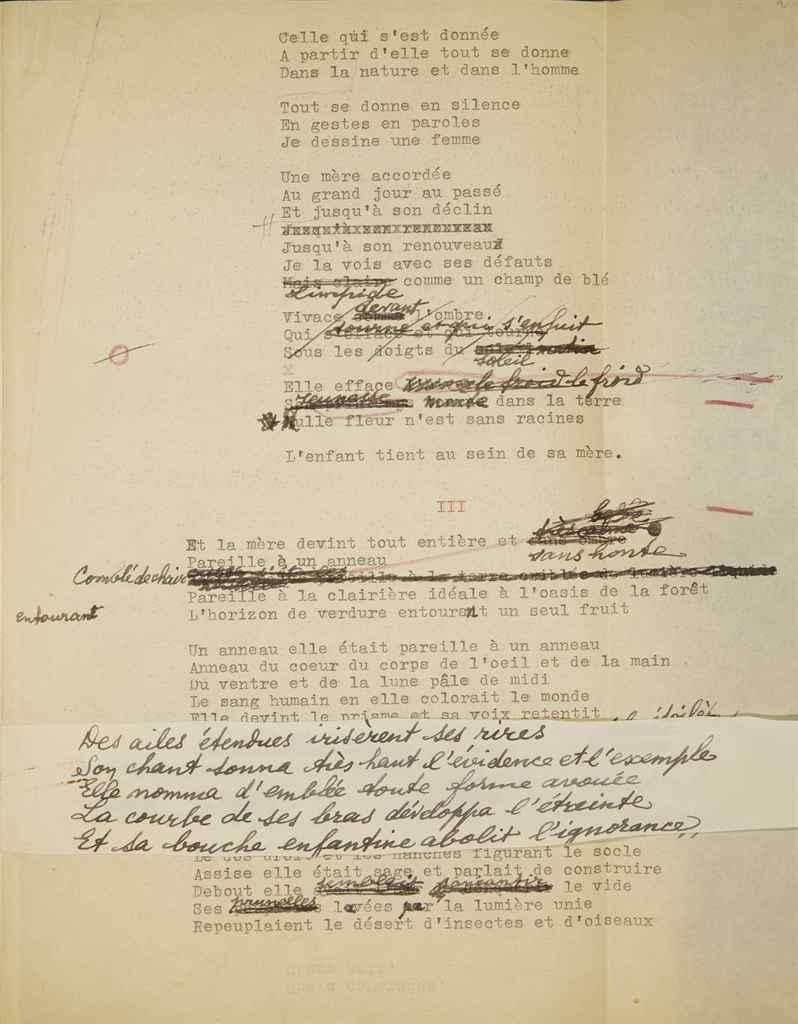 Celle qui s'est donnée
A partir d'elle tout se donne
Dans la nature et dans l'homme
Tout se donne en silence
En gestes en paroles
Je dessine une femme
Une mère accordée
Au grand jour au passé
Et jusqu'à son déclin
Jusqu'à son renouveau
Je la vois avec ses défauts
Mais claire comme un champ de blé
Limpide
devant
Vivace l'ombre.
tourne et qui s'enfuit
Qui s'efface et qui tourne
Sous les doigts du
soleil
X
Elle efface le froid le froid
jeunesse
monde dans la terre
Nulle fleur n'est sans racines
L'enfant tient au sein de sa mère.
III
Et la mère devint tout entière et sans ombre
sans honte
Pareille à un anneau
Comblé de chair
Pareille à la clairière idéale à l'oasis de la forêt
entourant
L'horizon de verdure entourant un seul fruit
Un anneau elle était pareille à un anneau
Anneau du coeur du corps de l'oeil et de la main
Du ventre et de la lune pâle de midi
Le sang humain en elle colorait le monde
Elle devint le prisme et sa voix retentit
Des ailes étendues irisèrent ses rires
Son chant sonna très haut l'évidence et l'exemple
Elle nomma d'emblée toute forme avouée
La courbe de ses bras développa l'étreinte
Et sa bouche enfantine abolit l'ignorance
Le dos droit et les hanches figurant le socle
Assise elle était sage et parlait de construire
Debout elle le vide
prunelles
Ses lavées par la lumière unie
Repeuplaient le désert d'insectes et d'oiseaux